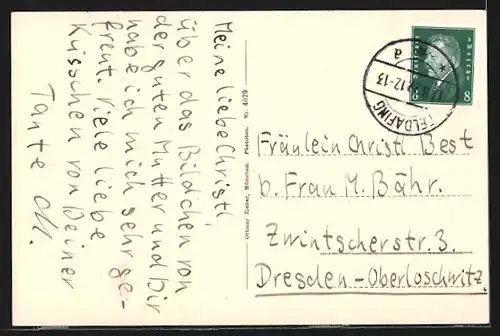 Meine liebe Christl,
über das Bildchen von
der guten Mutter und Dir
habe ich mich sehr ge-
freut. Viele liebe
Küsschen von Deiner
Tante
Ottmar Zieher, München. Nr. 4079
FELDAFING
12-13
a
Deutsches Reich
8
8
Fräulein Christl Best
b. Frau M. Bähr.
Zwintscherstr. 3.
Dresden-Oberloschwitz.